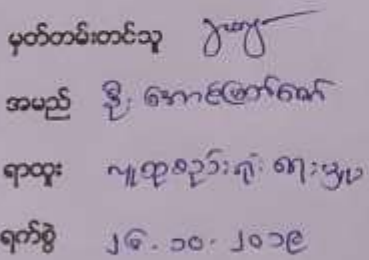 မှတ်တမ်းတင်သူ
အမည် ဦး အောင်မြတ်ဇော်
ရာထူး လူထုစည်းရုံးရေးမှူး
ရက်စွဲ ၂၆.၁၀.၂၀၁၉